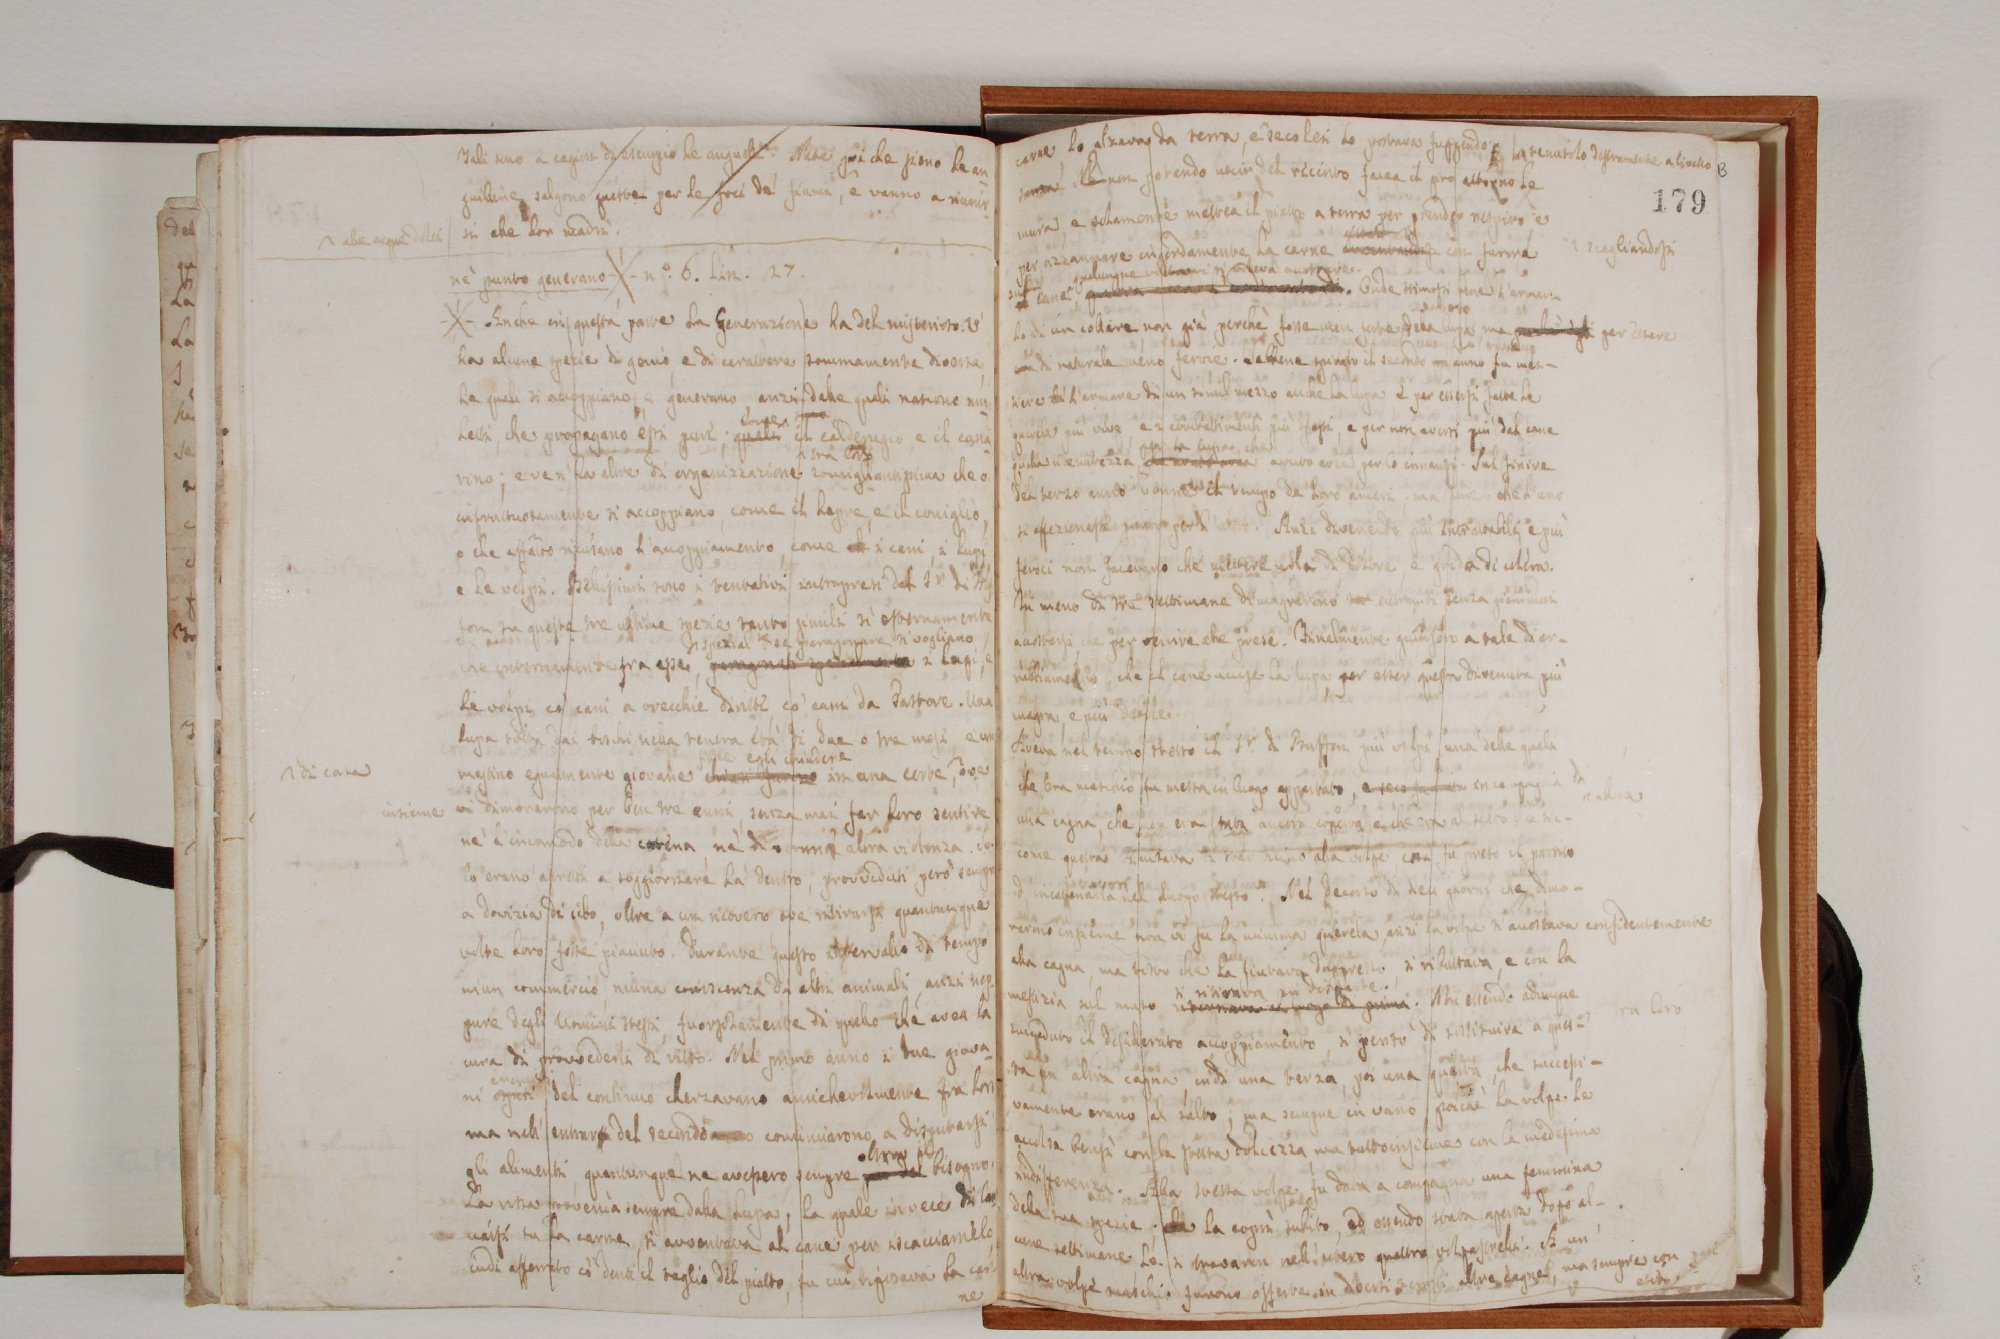 Tali sono a cagion di esempio le anguille. Nate poi che sieno le an
guilline salgono per le foci de' fiumi, e vanno a riunir
si che lor madri.
alle acque dolci
nè punto generano n.° 6. Lin. 27.
Anche in questa parte la Generazione ha del misterioso. V'
ha alcune spezie di genio, e di carattere sommamente diverse,
le quali si accoppiano, e generano anzi dalle quali nascono mu
letti, che propagano essi pure; come il calderugio, e il cana
vino; e ve n'ha altre di organizzazione tra loro somigliantissima che o
infruttuosamente si accoppiano, come il lepre, e il coniglio,
o che affatto ricusano l'accoppiamento, come i cani, i lupi,
e le volpi. Bellissimi sono i tentativi intrapresi dal Sr. di Buf
fon su queste tre ultime spezie tanto simili sì esternamente
che internamente fra esse, se paragonare si vogliano i lupi, e
le volpi co' cani a orecchie diritte co' cani da Pastore. Una
lupa tolta dai boschi nella tenera età di due o tre mesi, e un
mastino egualmente giovane egli chiudere in una corte, ove
di casa
insieme
vi dimorarono per ben tre anni, senza mai far loro sentire
nè l'incomodo della catena nè altra violenza.
lo erano astretti a soggiornare là dentro, provveduti però sempre
a dovizia di cibo, oltre a un ricovero ove ritirarsi quantunque
volte loro fosse piaciuto. Durante questo intervallo di tempo
niun commercio, niuna conoscenza di altri animali, anzi nep
pure degli Uomini stessi, fuorsolamente di quello che avea la
cura di provvederli di vitto. Nel primo anno i due giova
ni del continuo scherzavano amichevolmente fra loro
ma nell'entrar del secondo cominciarono a disputarsi
gli alimenti quantunque ne avessero sempre oltre al bisogno.
La rissa provenia sempre dalla lupa, la quale in vece di lan
ciarsi su la carne, si avventava al cane per iscacciarnelo,
indi afferrato co' denti il taglio del piatto, su cui riposava la car
ne
carne, lo alzava da terra, e seco lei lo portava fuggendo, e tenutolo destramente a livello
179
non potendo uscir del recinto facea il giro attorno le
mura, e solamente mettea il piatto a terra per prender respiro e
per azzannare ingordamente la carne con furore
scagliandosi
sul cane, qualunque volta vi si voleva accostare. Onde stimossi bene l'armar
lo di un collare, non già perchè fosse men forte della lupa, ma per essere
di naturale meno feroce. Sebbene spirato il secondo anno fu mes-
tiere l'armare di un simil mezzo anche la lupa per essersi fatte le
guerre più vive e i combattimenti più spessi, e per non aversi più dal cane
quella ritenutezza che avuto avea per lo innanzi. Sul finire
del terzo anno venne il tempo de' loro amori, ma senza che l'uno
si affezionasse punto per l'altro. Anzi divenendo più intrattabili e più
feroci non facevano che mettere urla di dolore, e grida di collera.
In meno di tre settimane dimagrirono entrambi senza giammai
accostarsi che per venire alle prese. Finalmente giunsero a tale di ar-
rabbiamento, che il cane uccise la lupa, per esser questa divenuta più
magra, e più debole.
Aveva nel tempo stesso il Sr. di Buffon più volpi una delle quali
che era maschio fu messa in luogo appartato, in compagnia di
una cagna, che non era stata ancora coperta e ch'era al salto: e sic-
come questa ricusava di star vicino alla volpe, fu preso il partito
d'incatenarla nel luogo stesso. Nel decorso di dieci giorni che dimo-
rarono insieme non vi fu la minima querela, anzi la volpe si accostava confidentemente
alla cagna, ma tosto che la fiutava dappresso, si rifiutava, e con la
mestizia nel muso si ritirava in disparte. Non essendo adunque
tra loro
succeduto il desiderato accoppiamento, si pensò di sostituire a ques-
ta un'altra cagna indi una terza, poi una quarta, che successi-
vamente erano al salto; ma sempre in vano poichè la volpe le
accolse bensì con la stessa dolcezza ma tuttoinsieme con la medesima
indifferenza. Alla stessa volpe fu data a compagna una femmina
della sua spezie; la coprì subito, ed essendo stata aperta dopo al-
cune settimane si trovaron nell'utero quattro volpastrelli. A un'
altra volpe maschio furono offerte in diversi tempi altre cagne, ma sempre con
esito